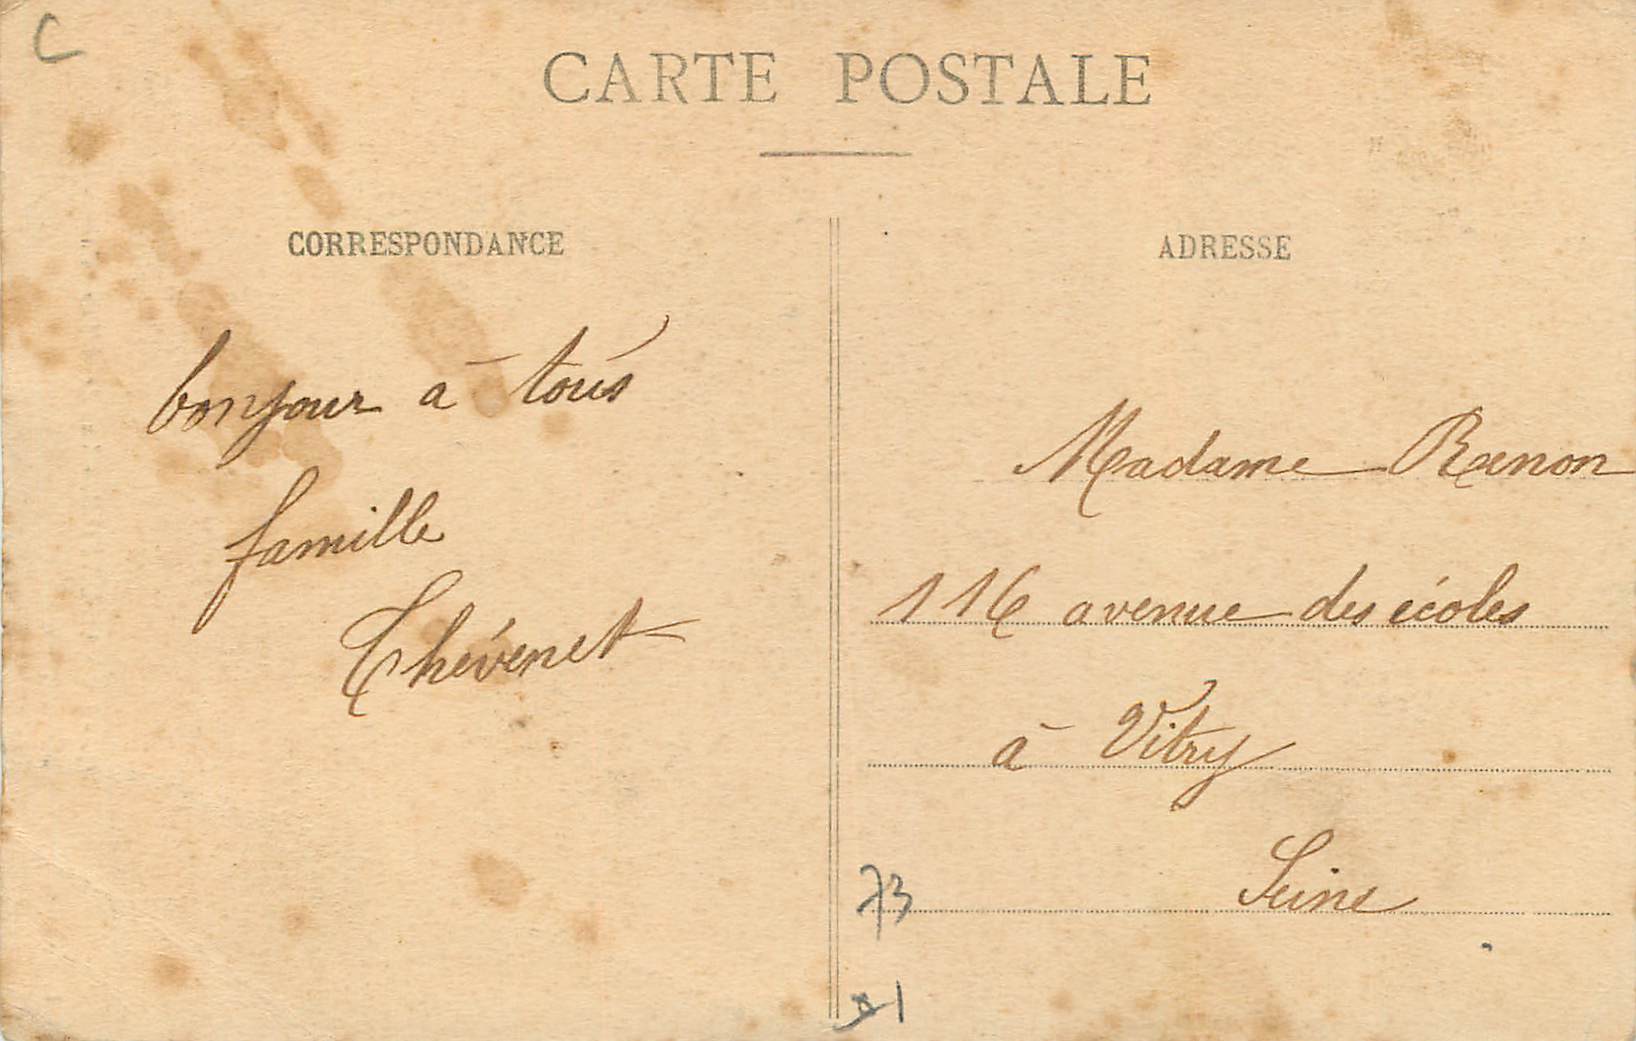 C
CARTE POSTALE
CORRESPONDANCE
bonjour à tous
famille
Thévenet
ADRESSE
Madame Renon
116 avenue des écoles
à Vitry
Seine
73